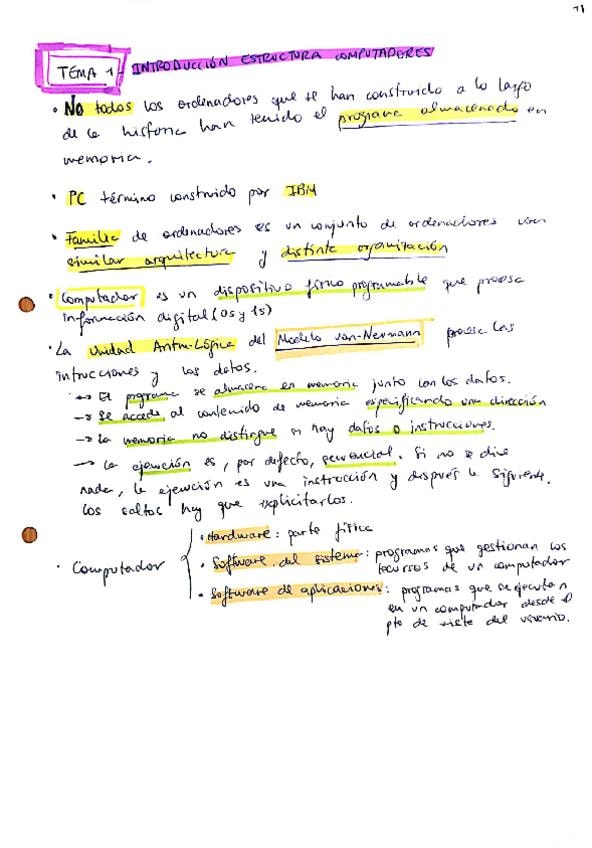 TEMA 1 - INTRODUCCIÓN ESTRUCTURA COMPUTADORES
• No todos los ordenadores que se han construido a lo largo
de la historia han tenido el programa almacenado en
memoria.
• PC término construido por IBM
• Familia de ordenadores es un conjunto de ordenadores con
similar arquitectura y distinta organización
• Computador es un dispositivo físico programable que procesa
información digital (0s y 1s)
• La Unidad Aritm-Lógica del Modelo Von-Neumann procesa las
intrucciones y los datos.
→ El programa se almacena en memoria junto con los datos.
→ Se accede al contenido de memoria especificando una dirección
→ La memoria no distingue si hay datos o instrucciones.
→ La ejecución es, por defecto, secuencial. Si no se dice
nada, la ejecución es una instrucción y después la siguiente.
Los saltos hay que explicitarlos.
• Hardware: parte física
• Computador { • Software del sistema: programas que gestionan los
recursos de un computador
• Software de aplicaciones: programas que se ejecutan
en un computador desde el
pto de vista del usuario.